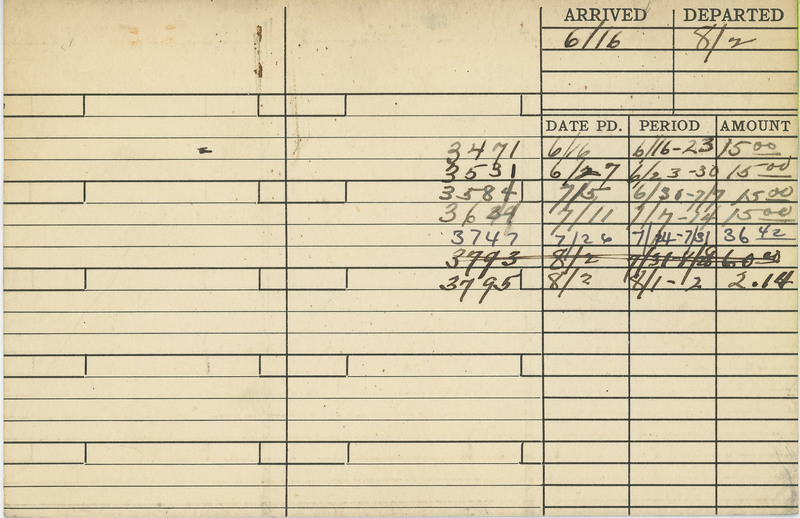 ARRIVED DEPARTED
6/16 8/2
DATE PD. PERIOD AMOUNT
3471 6/16 6/16-23 15 00
3531 6/27 6/23-30 15 00
3584 7/5 6/30-7/7 15 00
7/11 7/7-14 15 00
3747 7/26 7/14-7/31 36 42
3793 8/2 60 00
3795 8/2 8/1-2 2.14